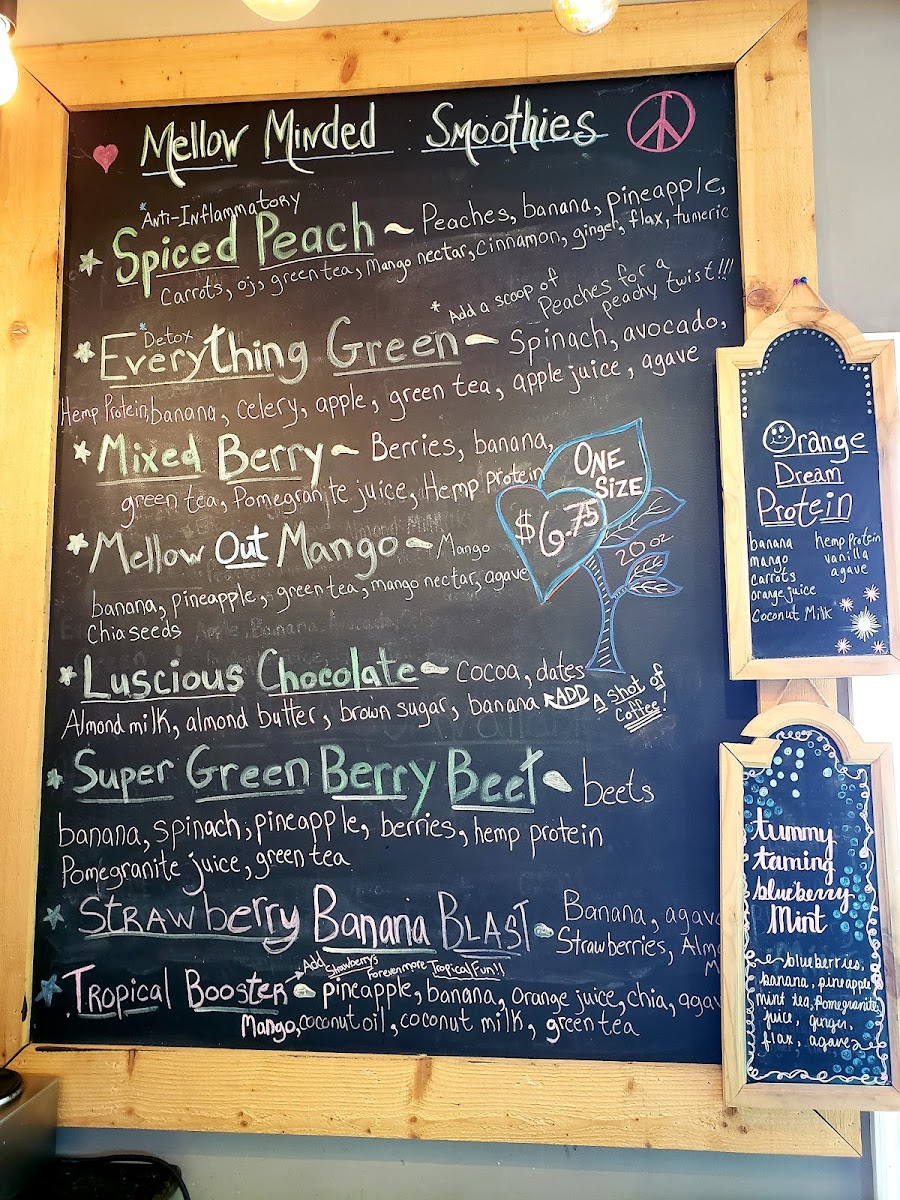 Mellow Minded Smoothies
*Anti-Inflammatory
Spiced Peach ~ Peaches, banana, pineapple,
Carrots, oj, green tea, Mango nectar, cinnamon, ginger, flax, tumeric
* Add a scoop of
Peaches for a
peachy twist!!!
*Detox
Everything Green ~ Spinach, avocado,
Hemp Protein, banana, celery, apple, green tea, apple juice, agave
Mixed Berry ~ Berries, banana,
green tea, Pomegranite juice, Hemp protein
ONE
SIZE
$6.75
20 oz.
Mellow Out Mango ~ Mango
banana, pineapple, green tea, mango nectar, agave
Chia seeds
Luscious Chocolate ~ cocoa, dates
Almond milk, almond butter, brown sugar, banana
ADD
A shot of
Coffee!
Super Green Berry Beet ~ beets
banana, spinach, pineapple, berries, hemp protein
Pomegranite juice, green tea
Strawberry Banana BLAST ~ Banana, agav
Strawberries, Alm
M
Tropical Booster ~ pineapple, banana, orange juice, chia, agav
Add Strawberrys
Forevenmore Tropical Fun!!
Mango, coconut oil, coconut milk, green tea
Orange
Dream
Protein
banana
mango
carrots
orange juice
Coconut Milk
hemp protein
vanilla
agave
tummy
taming
blueberry
Mint
blueberries,
banana, pineapple
mint tea, Pomegranite
juice, ginger,
flax, agave